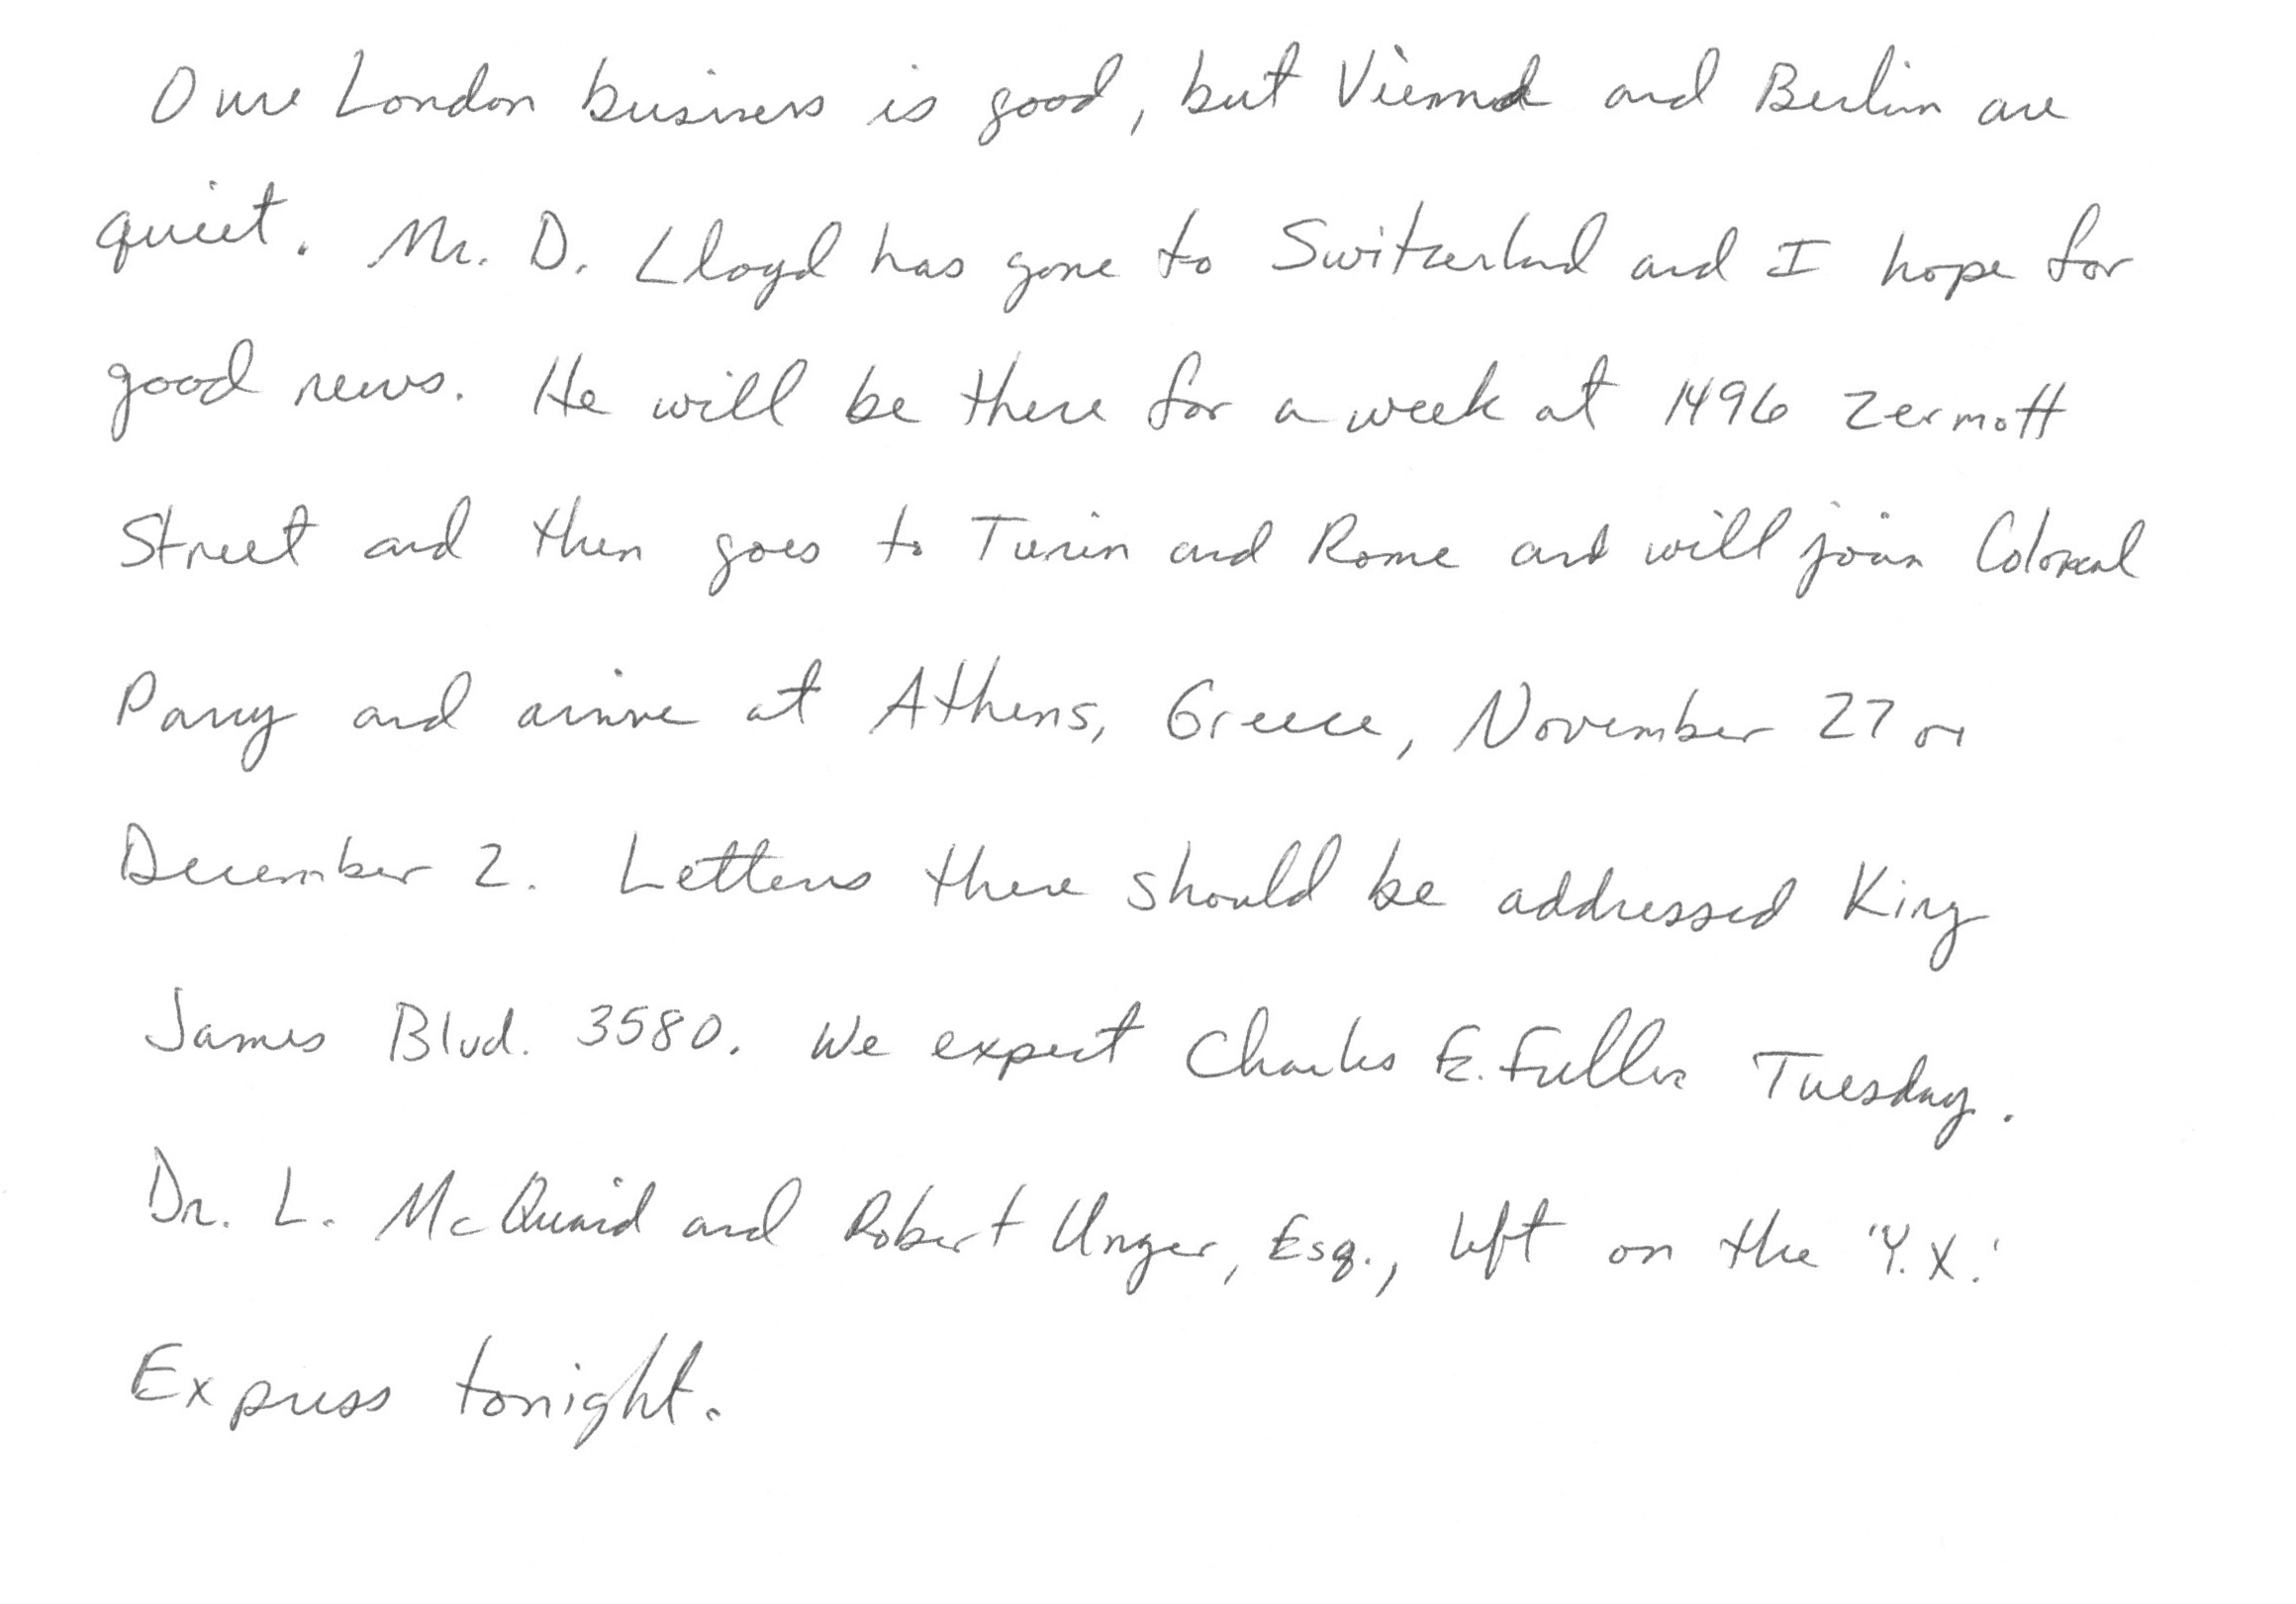 Oure London business is good, but Vienna and Berlin are
quiet. Mr. D. Lloyd has gone to Switzerland and I hope for
good news. He will be there for a week at 1496 Zermott
Street and then goes to Turin and Rome and will join Colonel
Parry and arrive at Athens, Greece, November 27 or
December 2. Letters there should be addressed King
James Blvd. 3580. We expect Charles E. Fuller Tuesday.
Dr. L. McQuaid and Robert Unger, Esq., left on the 'Y.X.'
Express tonight.